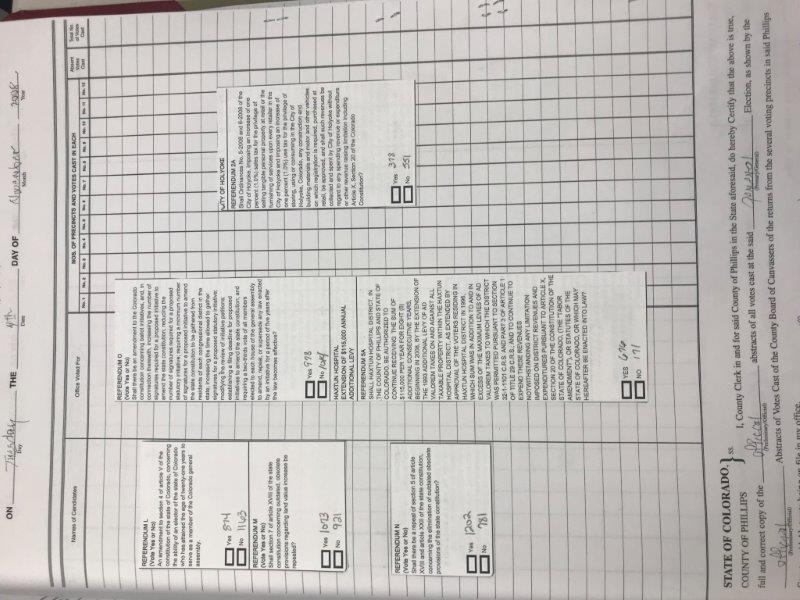 ON Tuesday THE 4th DAY OF November 2008
Day Date Month Year
Names of Candidates
Office Voted For
NOS. OF PRECINCTS AND VOTES CAST IN EACH
No. 1 No. 2 No. 3 No. 4 No. 5 No. 6 No. 7 No. 8 No. 9 No. 10 No. 11 No. 12
Absent Votes Cast
Total No. of Votes Cast
REFERENDUM L
(Vote Yes or No)
An amendment to section 4 of article V of the
constitution of the state of Colorado, concerning
the ability of an elector of the state of Colorado
who has attained the age of twenty-one years to
serve as a member of the Colorado general
assembly.
Yes 874
No 1163
REFERENDUM M
(Vote Yes or No)
Shall section 7 of article XVIII of the state
constitution concerning outdated, obsolete
provisions regarding land value increase be
repealed?
Yes 1073
No 921
REFERENDUM N
(Vote Yes or No)
Shall there be a repeal of section 5 of article
XVIII and article XXII of the state constitution,
concerning the elimination of outdated obsolete
provisions of the state constitution?
Yes 1202
No 781
REFERENDUM O
(Vote Yes or No)
Shall there be an amendment to the Colorado
constitution concerning ballot initiatives, and, in
connection therewith, increasing the number of
signatures required for a proposed initiative to
amend the state constitution; reducing the
number of signatures required for a proposed
statutory initiative; requiring a minimum number
of signatures for a proposed initiative to amend
the state constitution to be gathered from
residents of each congressional district in the
state; increasing the time allowed to gather
signatures for a proposed statutory initiative;
modifying the review of initiative petitions;
establishing a filing deadline for proposed
initiatives to amend the state constitution; and
requiring a two-thirds vote of all members
elected to each house of the general assembly
to amend, repeal, or supersede any law enacted
by an initiative for a period of five years after
the law becomes effective?
Yes 978
No
HAXTUN HOSPITAL
EXTENSION OF $115,000 ANNUAL
ADDITIONAL LEVY
REFERENDUM 5A
SHALL HAXTUN HOSPITAL DISTRICT, IN
THE COUNTY OF PHILLIPS AND STATE OF
COLORADO, BE AUTHORIZED TO
CONTINUE TO LEVY THE SUM OF
$115,000 PER YEAR FOR EIGHT (8)
ADDITIONAL CONSECUTIVE YEARS,
BEGINNING IN 2009, BY THE EXTENSION OF
THE 1993 AUTHORIZATION OF AD
VALOREM TAXES ON AND AGAINST ALL
TAXABLE PROPERTY WITHIN THE HAXTUN
HOSPITAL DISTRICT, AS EXTENDED BY
APPROVAL OF THE VOTERS RESIDING IN
HAXTUN HOSPITAL DISTRICT IN 1996,
WHICH SUM WAS IN ADDITION TO AND IN
EXCESS OF THE MAXIMUM LEVIES OF AD
VALOREM TAXES TO WHICH THE DISTRICT
WAS PERMITTED PURSUANT TO SECTION
32-1-1101 C.R.S. AND PART 3 OF ARTICLE 1
OF TITLE 29 C.R.S., AND TO CONTINUE TO
EXPEND THESE REVENUES
NOTWITHSTANDING ANY LIMITATION
IMPOSED ON DISTRICT REVENUES AND
EXPENDITURES PURSUANT TO ARTICLE X,
SECTION 20 OF THE CONSTITUTION OF THE
STATE OF COLORADO, (THE "TABOR
AMENDMENT"), OR STATUTES OF THE
STATE OF COLORADO, OR WHICH MAY
HEREAFTER BE ENACTED INTO LAW?
YES 674
NO 171
CITY OF HOLYOKE
REFERENDUM 2A
Shall Ordinances No. 5-2008 and 6-2008 of the
City of Holyoke, imposing an increase of one
percent (1.0%) sales tax for the privilege of
selling tangible personal property at retail or the
furnishing of services upon every retailer in the
City of Holyoke and imposing an increase of
one percent (1.0%) use tax for the privilege of
storing, using or consuming in the City of
Holyoke, Colorado, any construction and
building materials and motor and other vehicles
on which registration is required, purchased at
retail, be approved, and shall such revenues be
collected and spent by City of Holyoke without
regard to any spending revenue or expenditure
or other revenue raising limitation including
Article X, Section 20 of the Colorado
Constitution?
Yes 378
No 551
STATE OF COLORADO, } ss.
COUNTY OF PHILLIPS
I, County Clerk in and for said County of Phillips in the State aforesaid, do hereby Certify that the above is true,
full and correct copy of the official abstracts of all votes cast at the said General Election, as shown by the
(Preliminary/Official) (Primary/General)
official Abstracts of Votes Cast of the County Board of Canvassers of the returns from the several voting precincts in said Phillips
(Preliminary/Official)